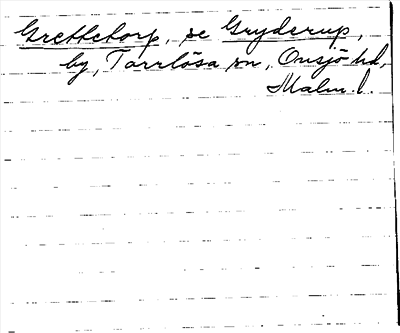 Grettetorp, se Gryderup,
by, Torrlösa sn, Onsjö hd,
Malm. l.